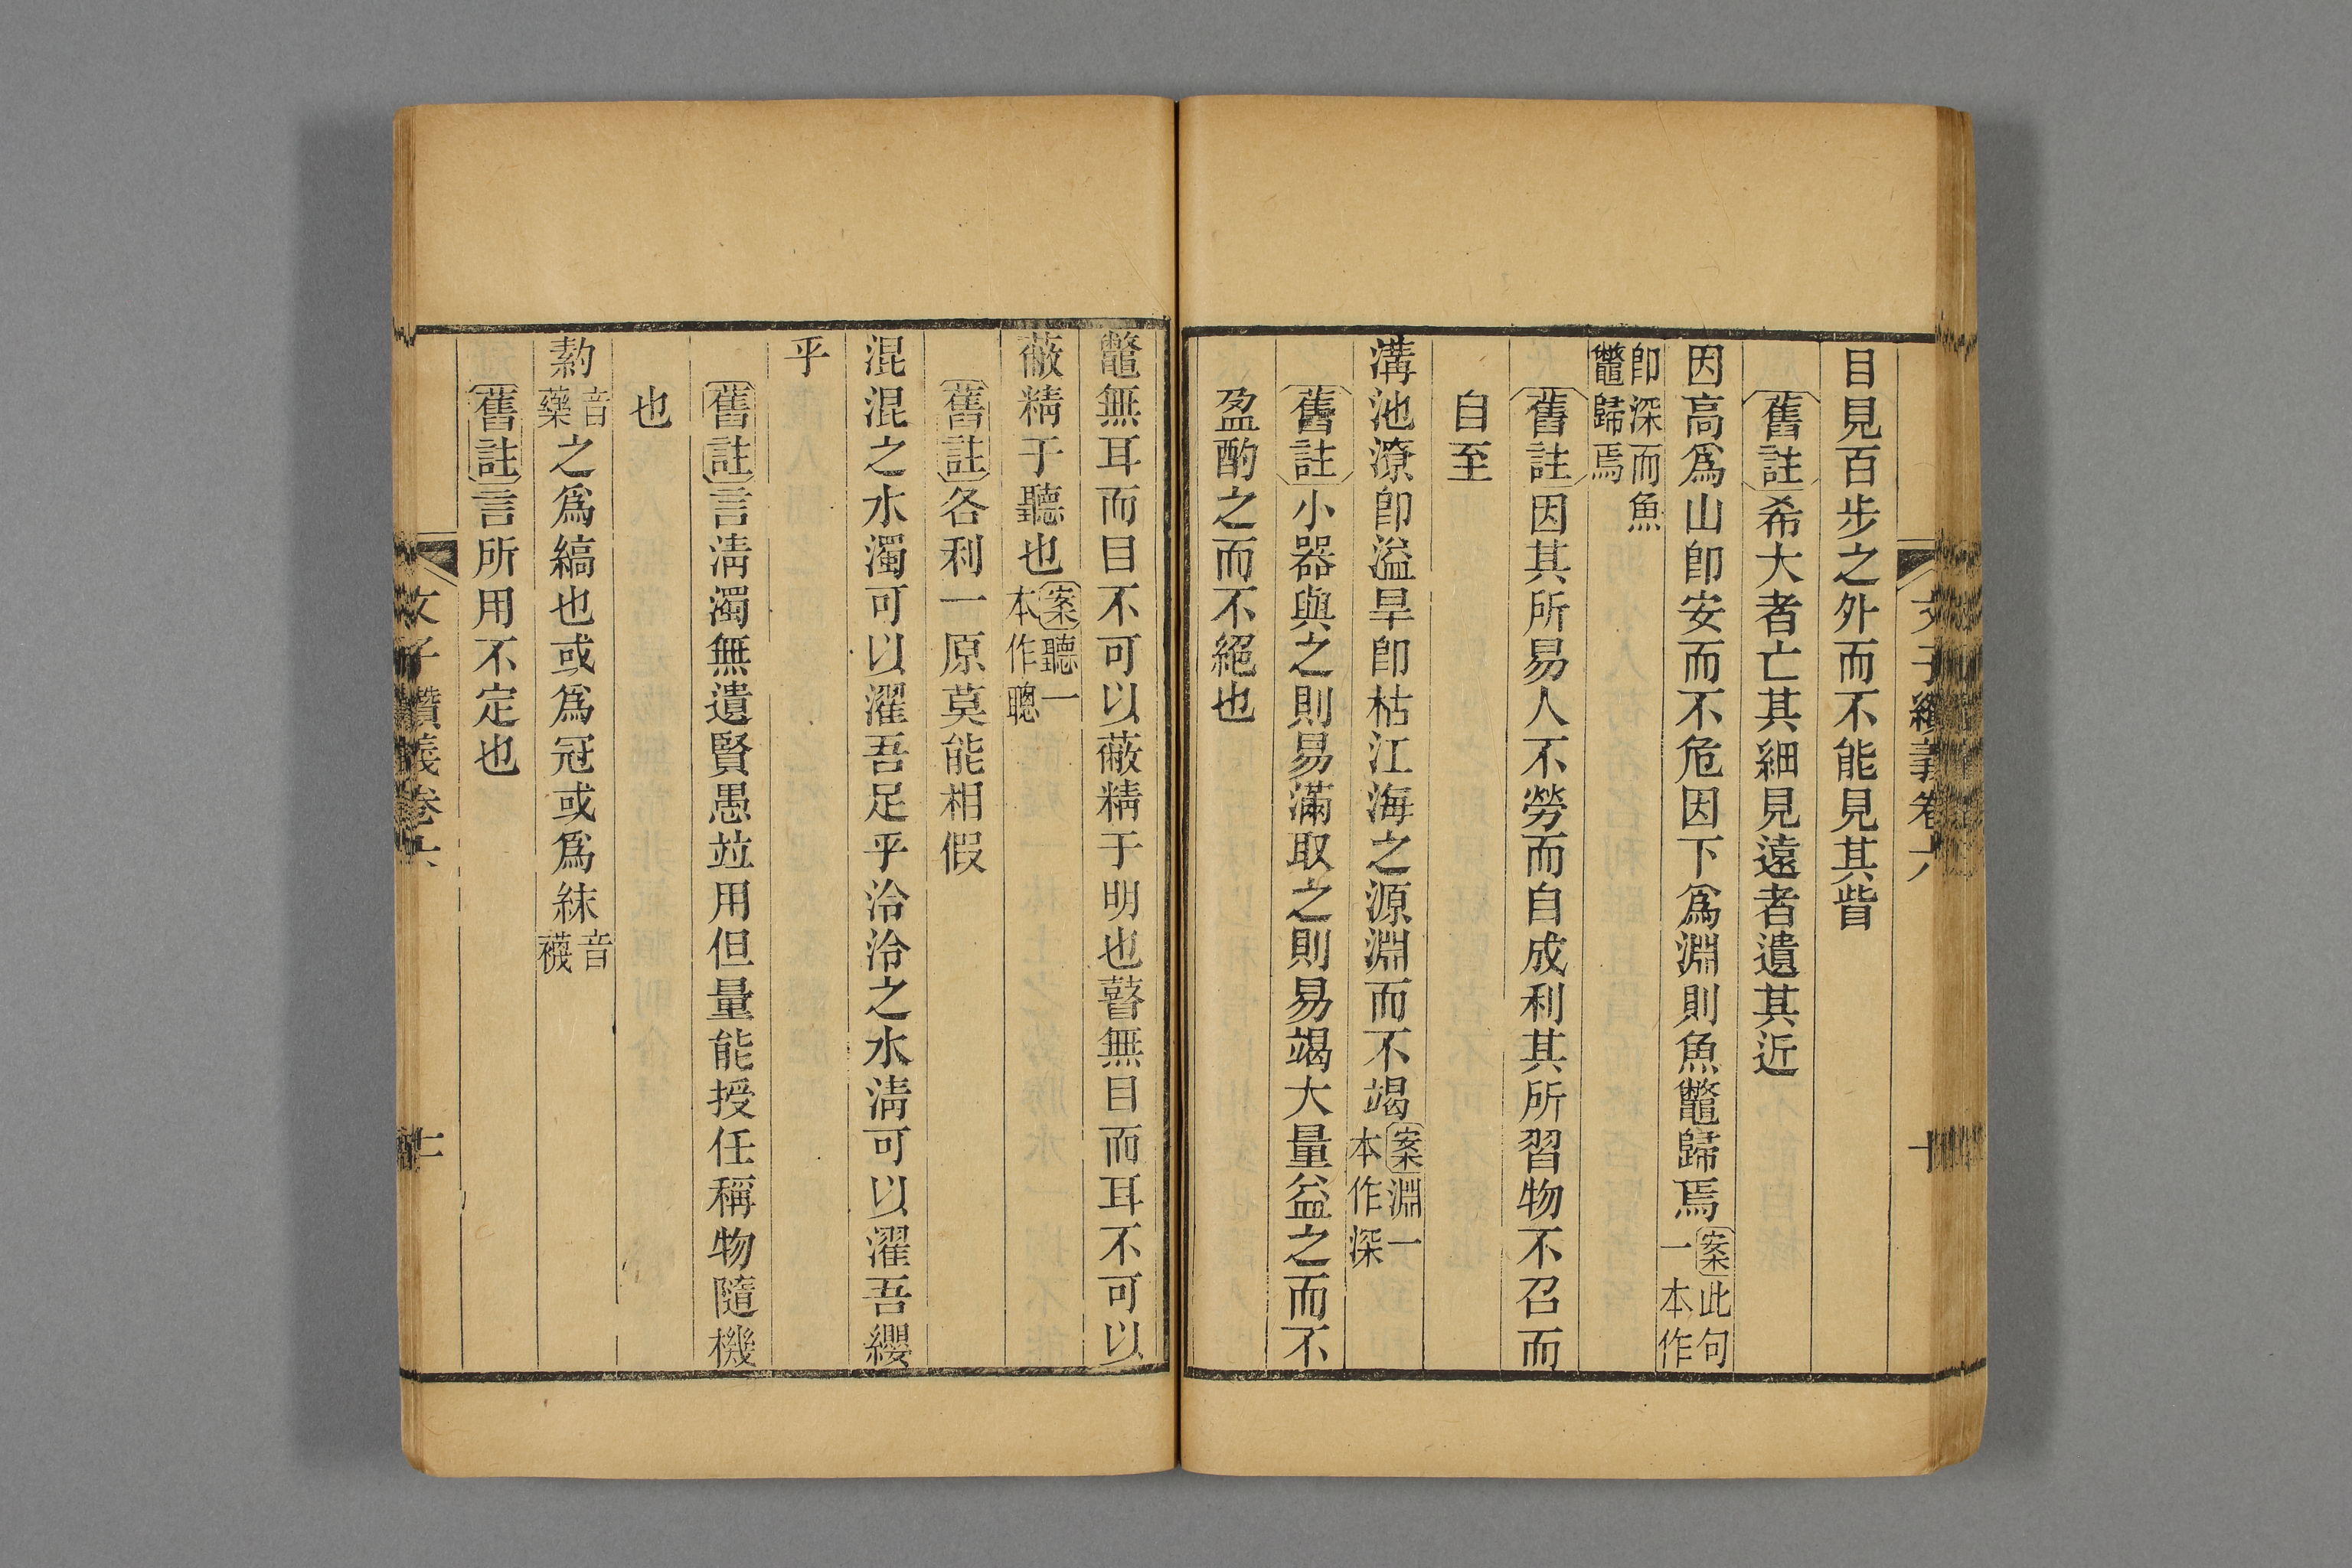 文子纘義卷六
十
目見百步之外而不能見其眥
舊註希大者亡其細見遠者遺其近
因高爲山卽安而不危因下爲淵則魚鼈歸焉案此句一本作
卽深而魚鼈歸焉
舊註因其所易人不勞而自成利其所習物不召而
自至
溝池潦卽溢旱卽枯江海之源淵而不竭案淵一本作深
舊註小器與之則易滿取之則易竭大量益之而不
盈酌之而不絕也
鼈無耳而目不可以蔽精于明也瞽無目而耳不可以
蔽精于聽也案聽一本作聰
舊註各利一原莫能相假
混混之水濁可以濯吾足乎泠泠之水淸可以濯吾纓
乎
舊註言淸濁無遺賢愚竝用但量能授任稱物隨機
也
䋤音藥之爲縞也或爲冠或爲絑音襪
舊註言所用不定也
文子纘義卷六